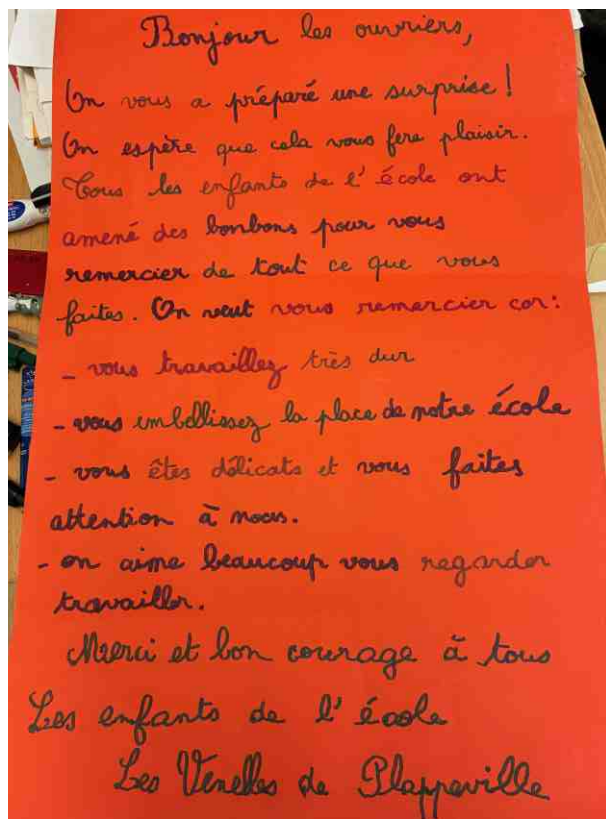 Bonjour les ouvriers,
On vous a préparé une surprise !
On espère que cela vous fera plaisir.
Tous les enfants de l'école ont
amené des bonbons pour vous
remercier de tout ce que vous
faites. On veut vous remercier car :
- vous travaillez très dur
- vous embellissez la place de notre école
- vous êtes délicats et vous faites
attention à nous.
- on aime beaucoup vous regarder
travailler.
Merci et bon courage à tous
Les enfants de l'école
Les Venelles de Plappeville